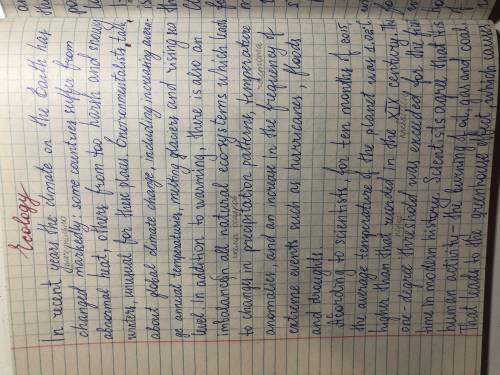 Ecology
In recent years the climate on the Earth has
changed markedly: some countries suffer from
abnormal heat, others from too harsh and snowy
winters, unusual for these places. Environmentalists talk
about global climate change, including increasing avera-
ge annual temperatures, melting glaciers and rising sea
level. In addition to warming, there is also an
imbalance in all natural ecosystems which leads
to changes in precipitation patterns, temperature
anomalies, and an increase in the frequency of
extreme events such as hurricanes, floods
and droughts.
According to scientists for ten months of 2015,
the average temperature of the planet was 1.02°
higher than that recorded in the XIX century. The
one-degree threshold was exceeded for the first
time in modern history. Scientists agree that it is
human activity - the burning of oil, gas and coal,
That leads to the greenhouse effect which causes